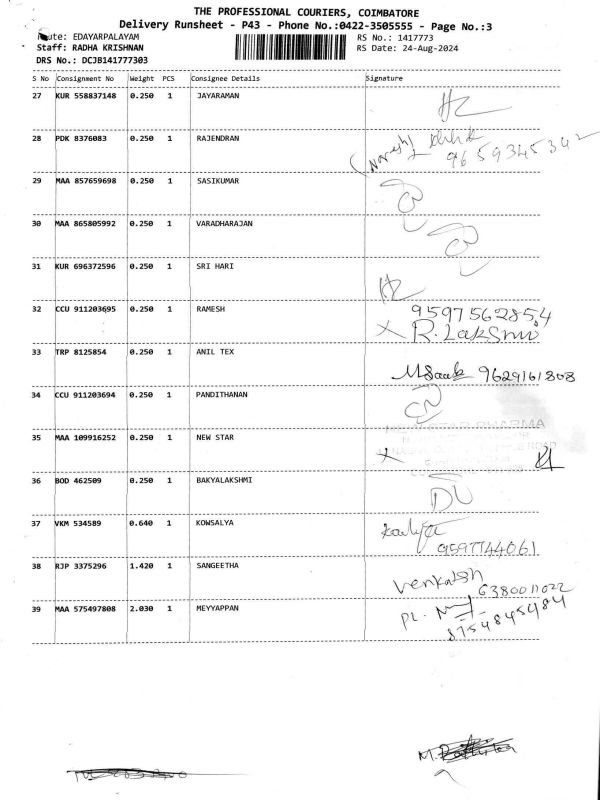 THE PROFESSIONAL COURIERS, COIMBATORE
Delivery Runsheet - P43 - Phone No.:0422-3505555 - Page No.:3
Route: EDAYARPALAYAM RS No.: 1417773
Staff: RADHA KRISHNAN RS Date: 24-Aug-2024
DRS No.: DCJB141777303
S No Consignment No Weight PCS Consignee Details Signature
27 KUR 558837148 0.250 1 JAYARAMAN
28 PDK 8376083 0.250 1 RAJENDRAN
(Naresh) 9659345342
29 MAA 857659698 0.250 1 SASIKUMAR
30 MAA 865805992 0.250 1 VARADHARAJAN
31 KUR 696372596 0.250 1 SRI HARI
32 CCU 911203695 0.250 1 RAMESH 9597562854
X R.Lakshmi
33 TRP 8125854 0.250 1 ANIL TEX
9629161808
34 CCU 911203694 0.250 1 PANDITHANAN
PHARMA
35 MAA 109916252 0.250 1 NEW STAR
ROAD
36 BOD 462509 0.250 1 BAKYALAKSHMI
37 VKM 534589 0.640 1 KOWSALYA
9597744061
38 RJP 3375296 1.420 1 SANGEETHA
Venkatsh 6380011022
39 MAA 575497808 2.030 1 MEYYAPPAN PL.
8754845484